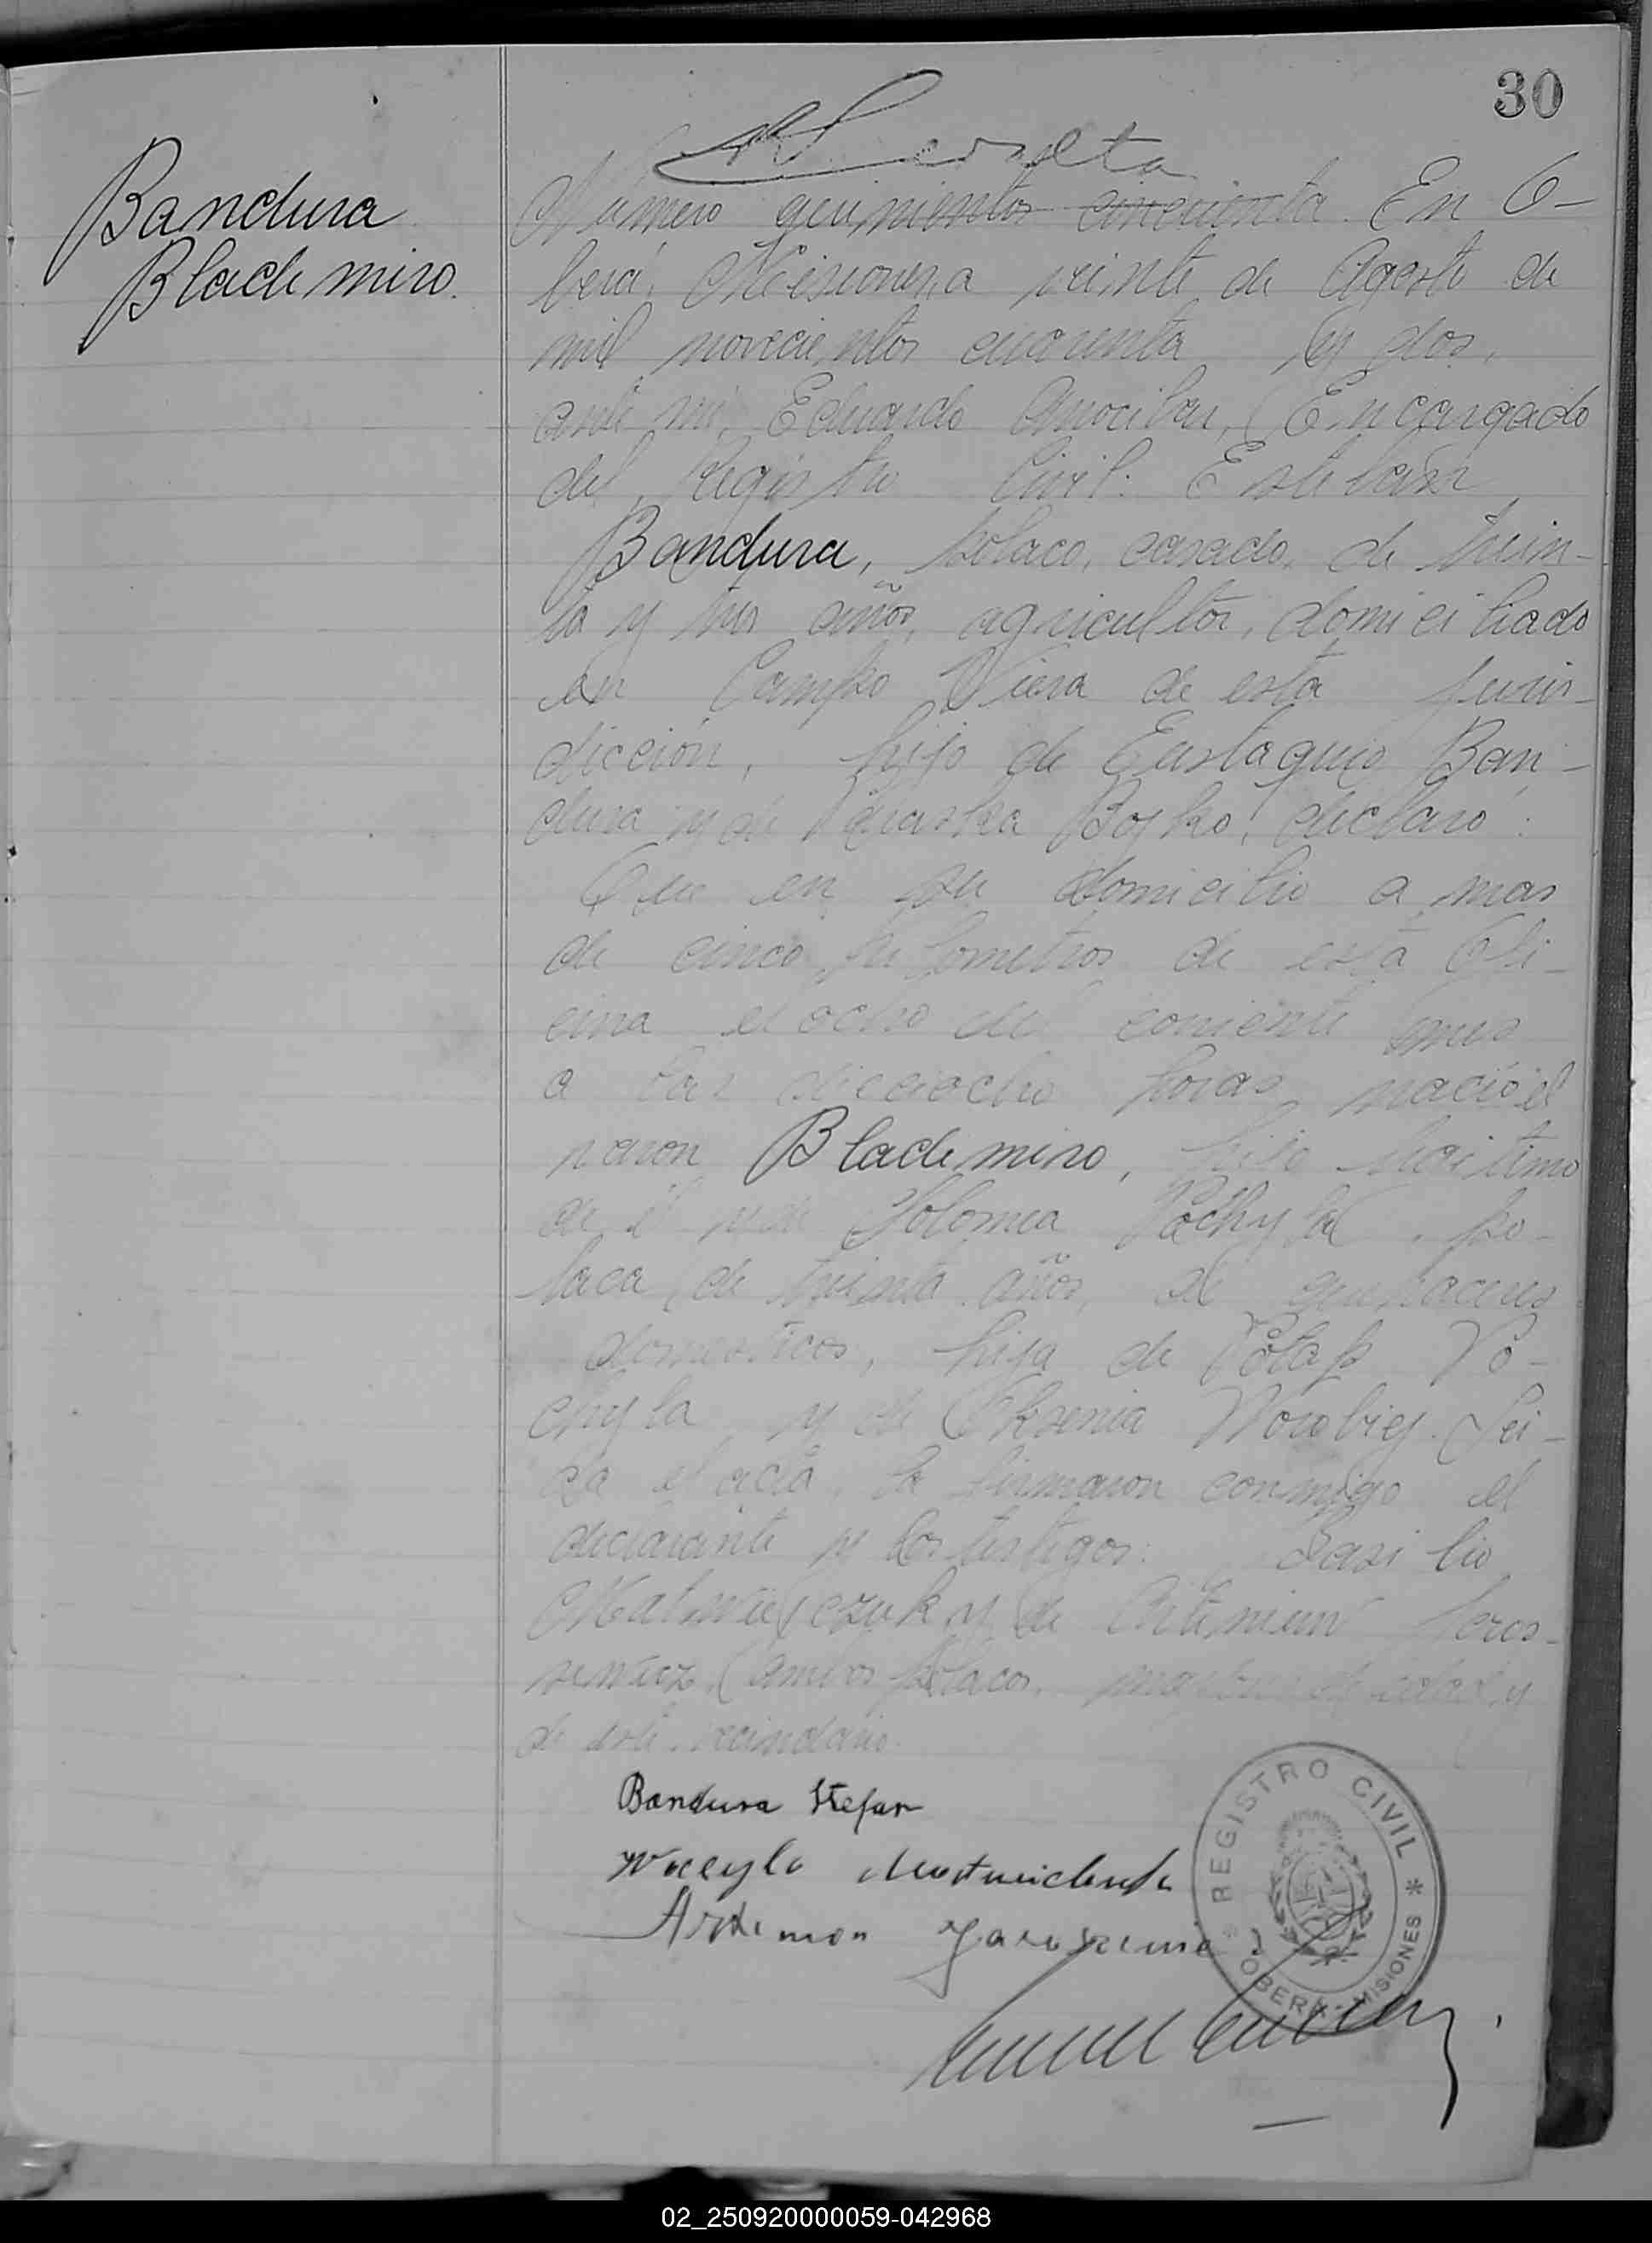 30
Bandura
Blademiro.
Número quinientos cincuenta. En O-
berá, Misiones, a veinte de Agosto de
mil novecientos cuarenta y dos,
ante mí, Eduardo Encargado
del Registro Civil: Esteban
Bandura, polaco, casado, de trein-
ta y tres años, agricultor, domiciliado
en Campo Viera de esta juris-
dicción, hijo de Eustaquio Ban-
dura y de Paraska Bojko, declaró:
Que en su domicilio a mas
de cinco kilometros de esta Ofi-
cina el ocho del corriente mes
a las dieciocho horas nació el
varon Blademiro, hijo legitimo
de él y de Solomea Pochyla, po-
laca, de treinta años, de quehaceres
domesticos, hija de Potap Po-
chyla y de Oksenia Worobiej. Lei-
da el acta, la firmaron conmigo el
declarante y los testigos: Basilio
y de
ambos polacos, mayores de edad y
de este vecindario.
Bandura Stefan
Wacyla
Artimon
REGISTRO CIVIL
OBERÁ - MISIONES
02_250920000059-042968